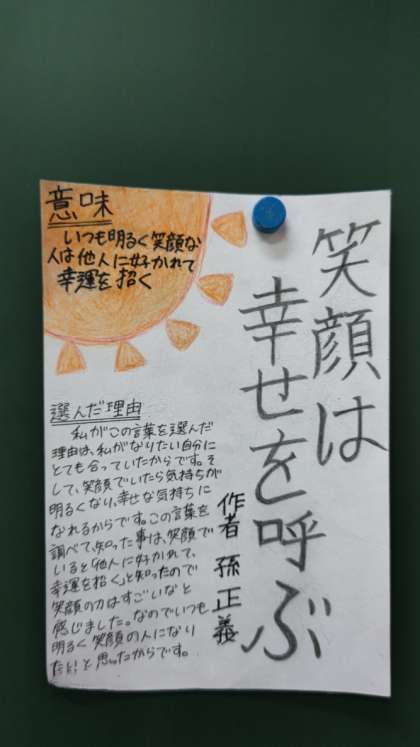 笑顔は
幸せを呼ぶ
作者 孫正義
意味
いつも明るく笑顔な
人は他人に好かれて
幸運を招く
選んだ理由
私がこの言葉を選んだ
理由は、私がなりたい自分に
とても合っていたからです。そ
して、笑顔でいたら気持ちが
明るくなり、幸せな気持ちに
なれるからです。この言葉を
調べて、知った事は、笑顔で
いると「他人に好かれて、
幸運を招く」と知ったので
笑顔の力はすごいなと
感じました。なのでいつも
明るく笑顔の人になり
たい!と思ったからです。